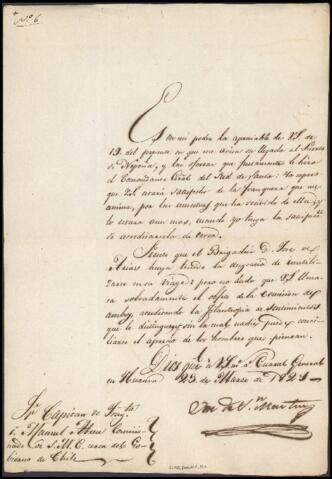 Nº 6
Es en mi poder la apreciable de V.S. de
19. del presente en que me avisa su llegada al Puerto
de Nepeña, y las ofertas que francamente le hizo
el Comandante Gral del Sud de Santa: No espero
que V.S. estará satisfecho de la franqueza que me
anima, por las muestras que ha recibido de ella, y
lo estará aun mas, cuando yo tenga la satisfacc.n
de acreditarsela de cerca.
Siento que el Brigadier D. José de
Arias haya tenido la desgracia de
en su viage: pero no dudo que V.S. llena-
ra sobradamente el objeto de la Comision de
ambos, acreditando la filantropia de sentimientos
que le distinguen sin la cual nadie puede
el aprecio de los hombres que piensan.
Dios gue. à V.S. m.s a.s Cuartel General
en Huaura 25 de Marzo de 1821
José de Sn. Martin
Sr. Capitan de Frag.ta
D. Manuel Abreu Comisio-
nado de S.M.C. cerca del Go-
bierno de Chile